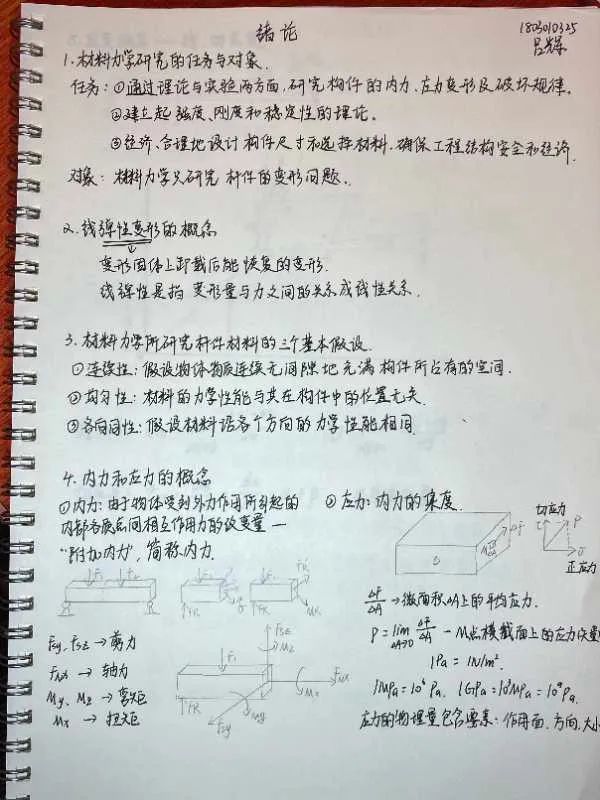 绪论
180301325
吕辉
1.材料力学研究的任务与对象.
任务:①通过理论与实验两方面,研究构件的内力、应力变形及破坏规律.
②建立起强度、刚度和稳定性的理论.
③经济、合理地设计构件尺寸和选择材料,确保工程结构安全和经济.
对象:材料力学只研究杆件的变形问题.
2.线弹性变形的概念
变形固体上卸载后能恢复的变形.
线弹性是指变形量与力之间的关系成线性关系.
3.材料力学所研究杆件材料的三个基本假设.
①连续性:假设物体物质连续无间隙地充满构件所占有的空间.
②均匀性:材料的力学性能与其在构件中的位置无关
③各向同性:假设材料沿各个方向的力学性能相同.
4.内力和应力的概念
①内力:由于物体受到外力作用所引起的
内部各质点间相互作用力的改变量—
"附加内力",简称内力.
②应力:内力的集度.
切应力
τ P
σ
正应力
ΔF/ΔA →微面积ΔA上的平均应力.
P=lim ΔA→0 ΔF/ΔA —M点横截面上的应力矢量
1Pa=1N/m².
1MPa=10⁶Pa. 1GPa=10³MPa=10⁹Pa.
应力的物理量包含要素:作用面、方向、大小
Fsy,Fsz→剪力
FNx→轴力
My、Mz→弯矩
Mx→扭矩
Fsz
Mz
F1
FNx
Mx
FR
My
Fsy